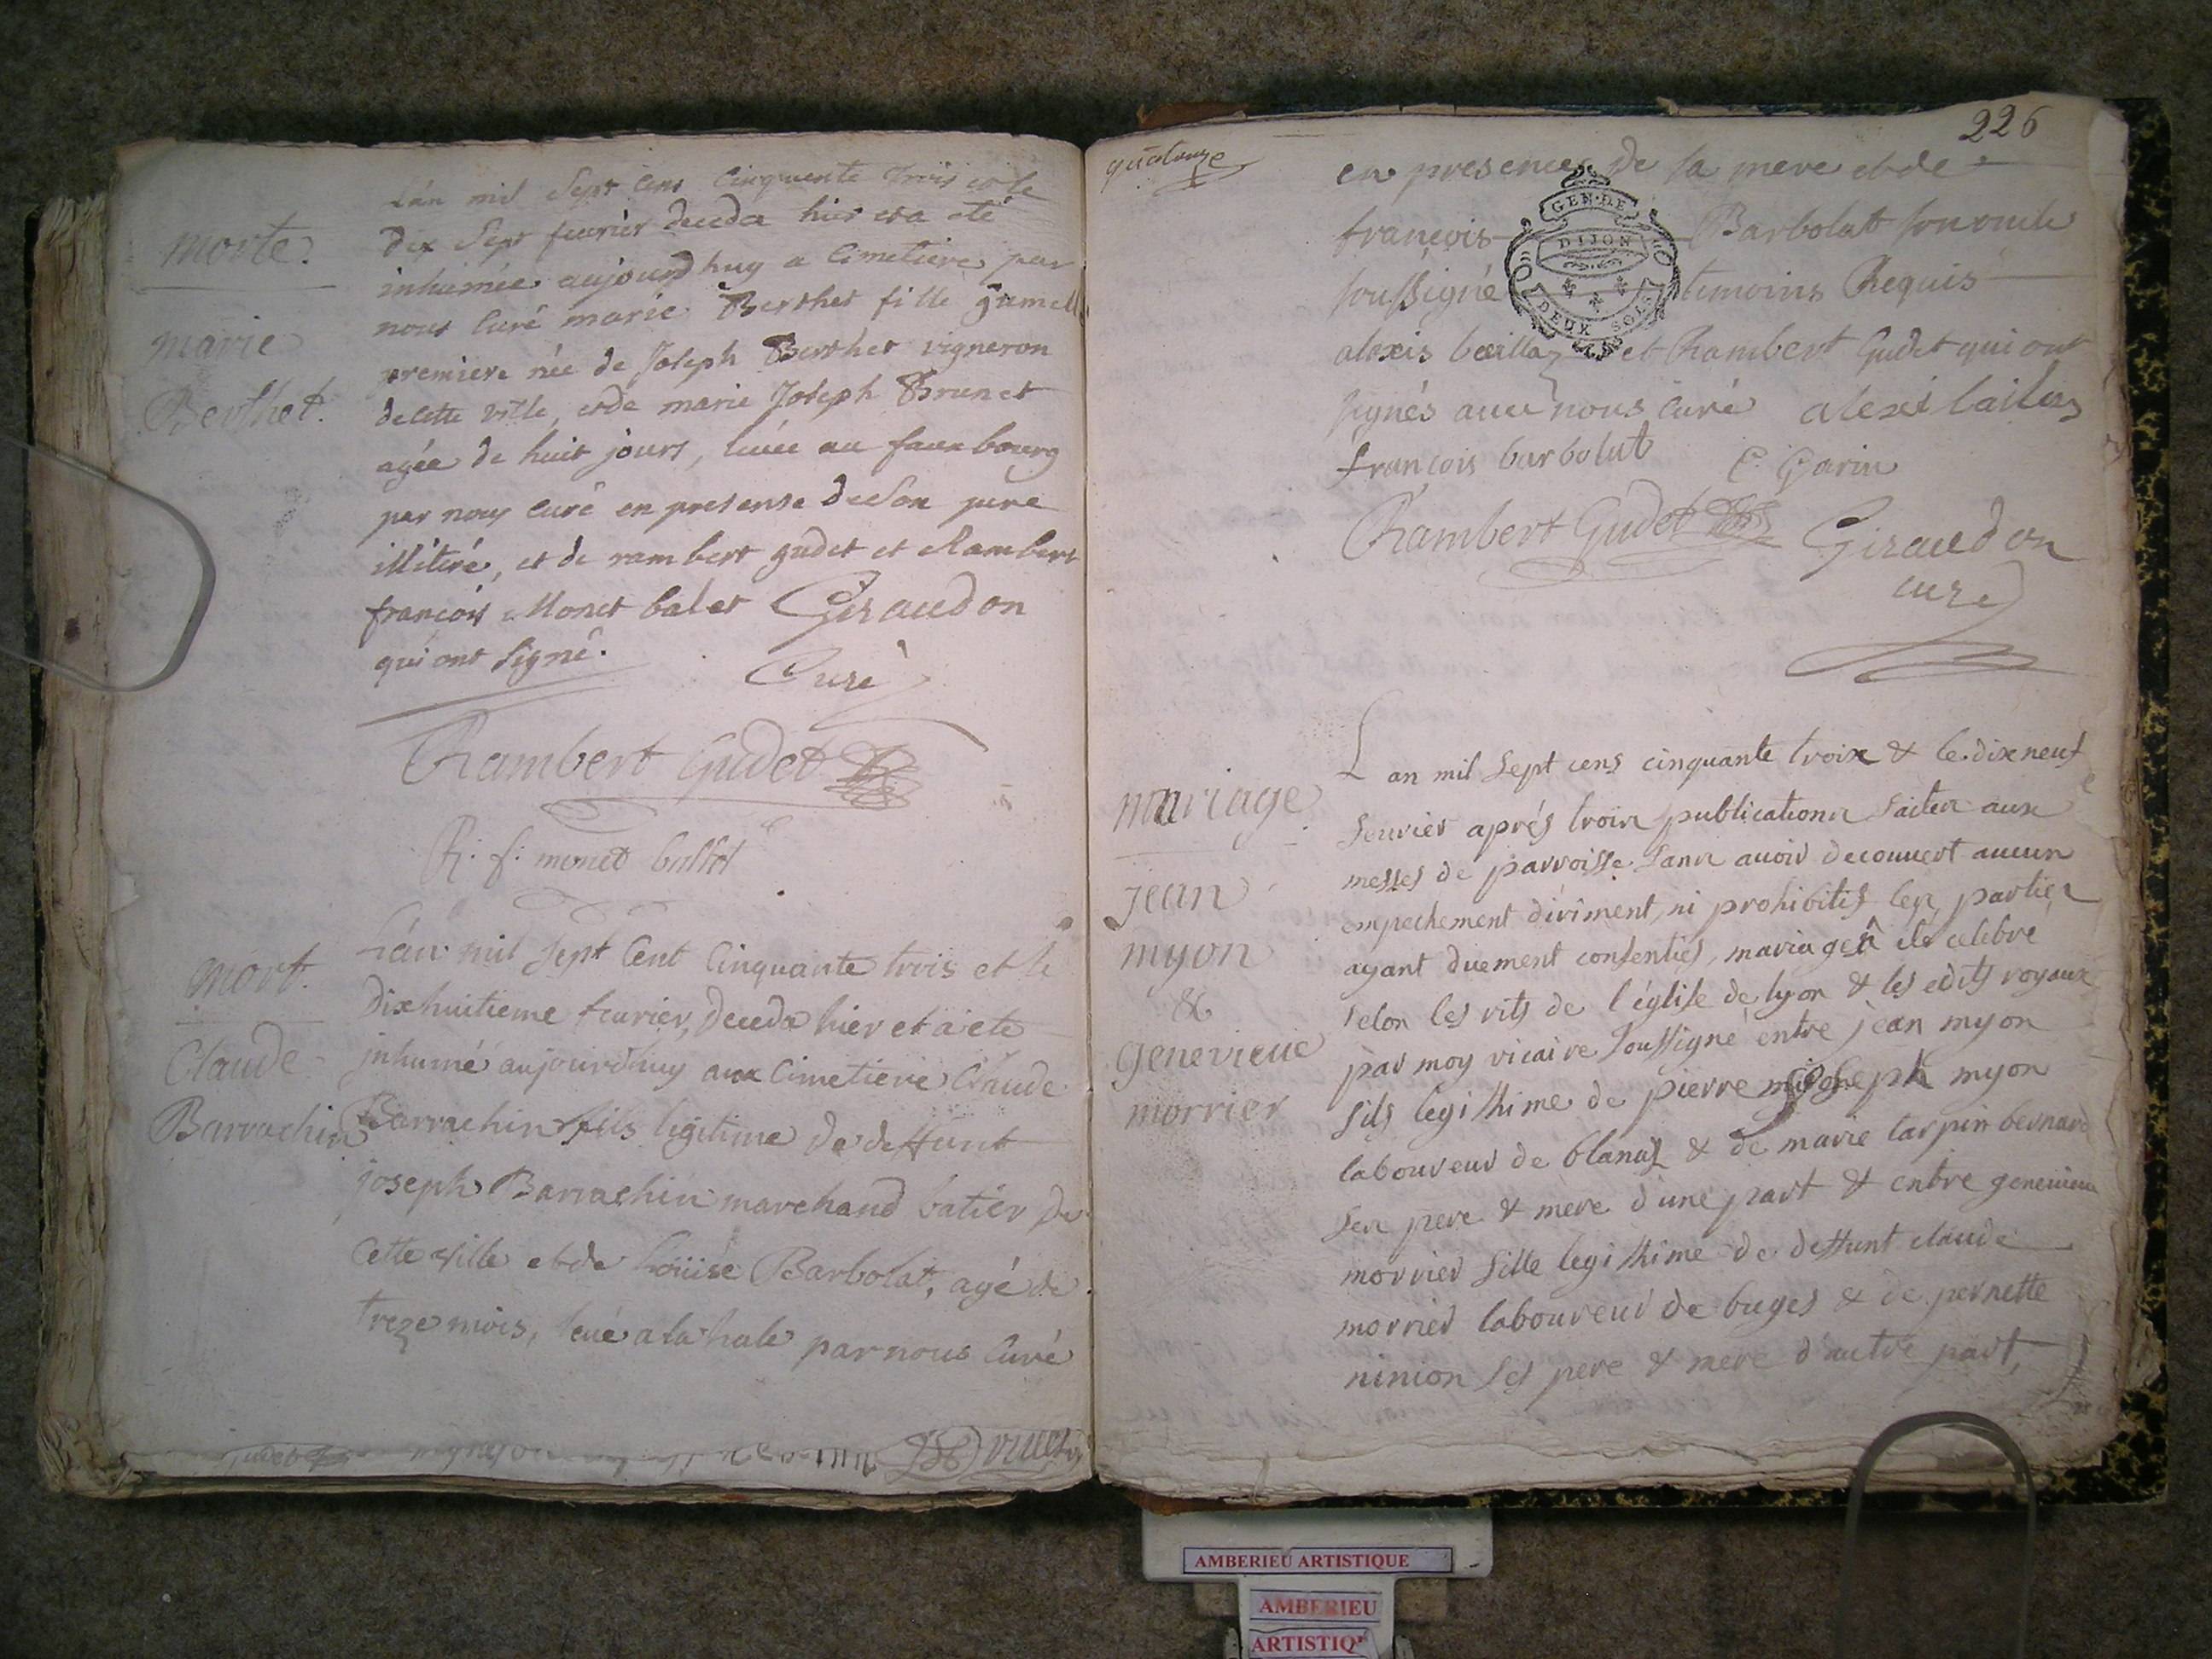 morte.
marie
Berthet.
Lán mil Sept Cens Cinquente Trois et le
dix Sept feurier deceda hier et a eté
inhumée aujourdhuy a Cimetiere par
nous Curé marie Berthet fille jumelle
premiere née de Joseph Berthet vigneron
de cette ville, et de marie Joseph Brunet
agée de huit jours, leuée au fauxbourg
par nous Curé en presense de Son pere
illiteré, et de rambert gudet et Rambert
francois Monet balet Giraudon
qui ont Signé. Curé
Rambert Gudet
R. f. monet ballet
mort.
Claude
Barrachin
Lán mil Sept Cent Cinquante trois et le
dixhuitieme feurier, deceda hier et a ete
jnhumé aujourdhuy aux Cimetiere Claude
Barrachin fils legitime de deffunt
joseph Barrachin marchand batier de
Cette ville et de Loüise Barbolat, agé de
treze mois, leué a la hale par nous Curé
quatorze
226
en presence de sa mere et de
françois Barbolat son oncle
soussigné temoins Requis
alexis et Rambert Gudet qui ont
signés avec nous curé alexi
françois barbolat C. Garin
Rambert Gudet Giraudon
curé
GEN. DE
DIJON
DEUX SOLS
mariage
jean
myon
&
genevieue
morrier
L an mil sept cens cinquante troix & le dix neuf
feurier aprés troix publications faites aux
messes de parroisse sans avoir decouvert aucun
empechement dirîment, ni prohibitif les parties
ayant duement consenties, mariage â eté celebré
selon les rits de l'église de lyon & les edits royaux
par moy vicaire soussigné entre jean myon
fils legithime de pierre joseph myon
laboureur de blanaz & de marie tarpin bernard
ses pere & mere d'une part & entre genevieue
morrier fille legithime de deffunt claude
morrier laboureur de buges & de pernette
ninion ses pere & mere d'autre part,
AMBERIEU ARTISTIQUE
AMBERIEU
ARTISTIQ